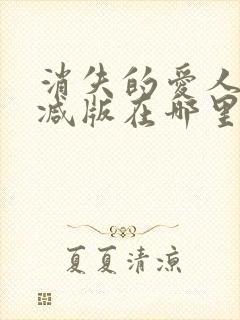 消失的愛人
减版在哪里
夏夏清凉